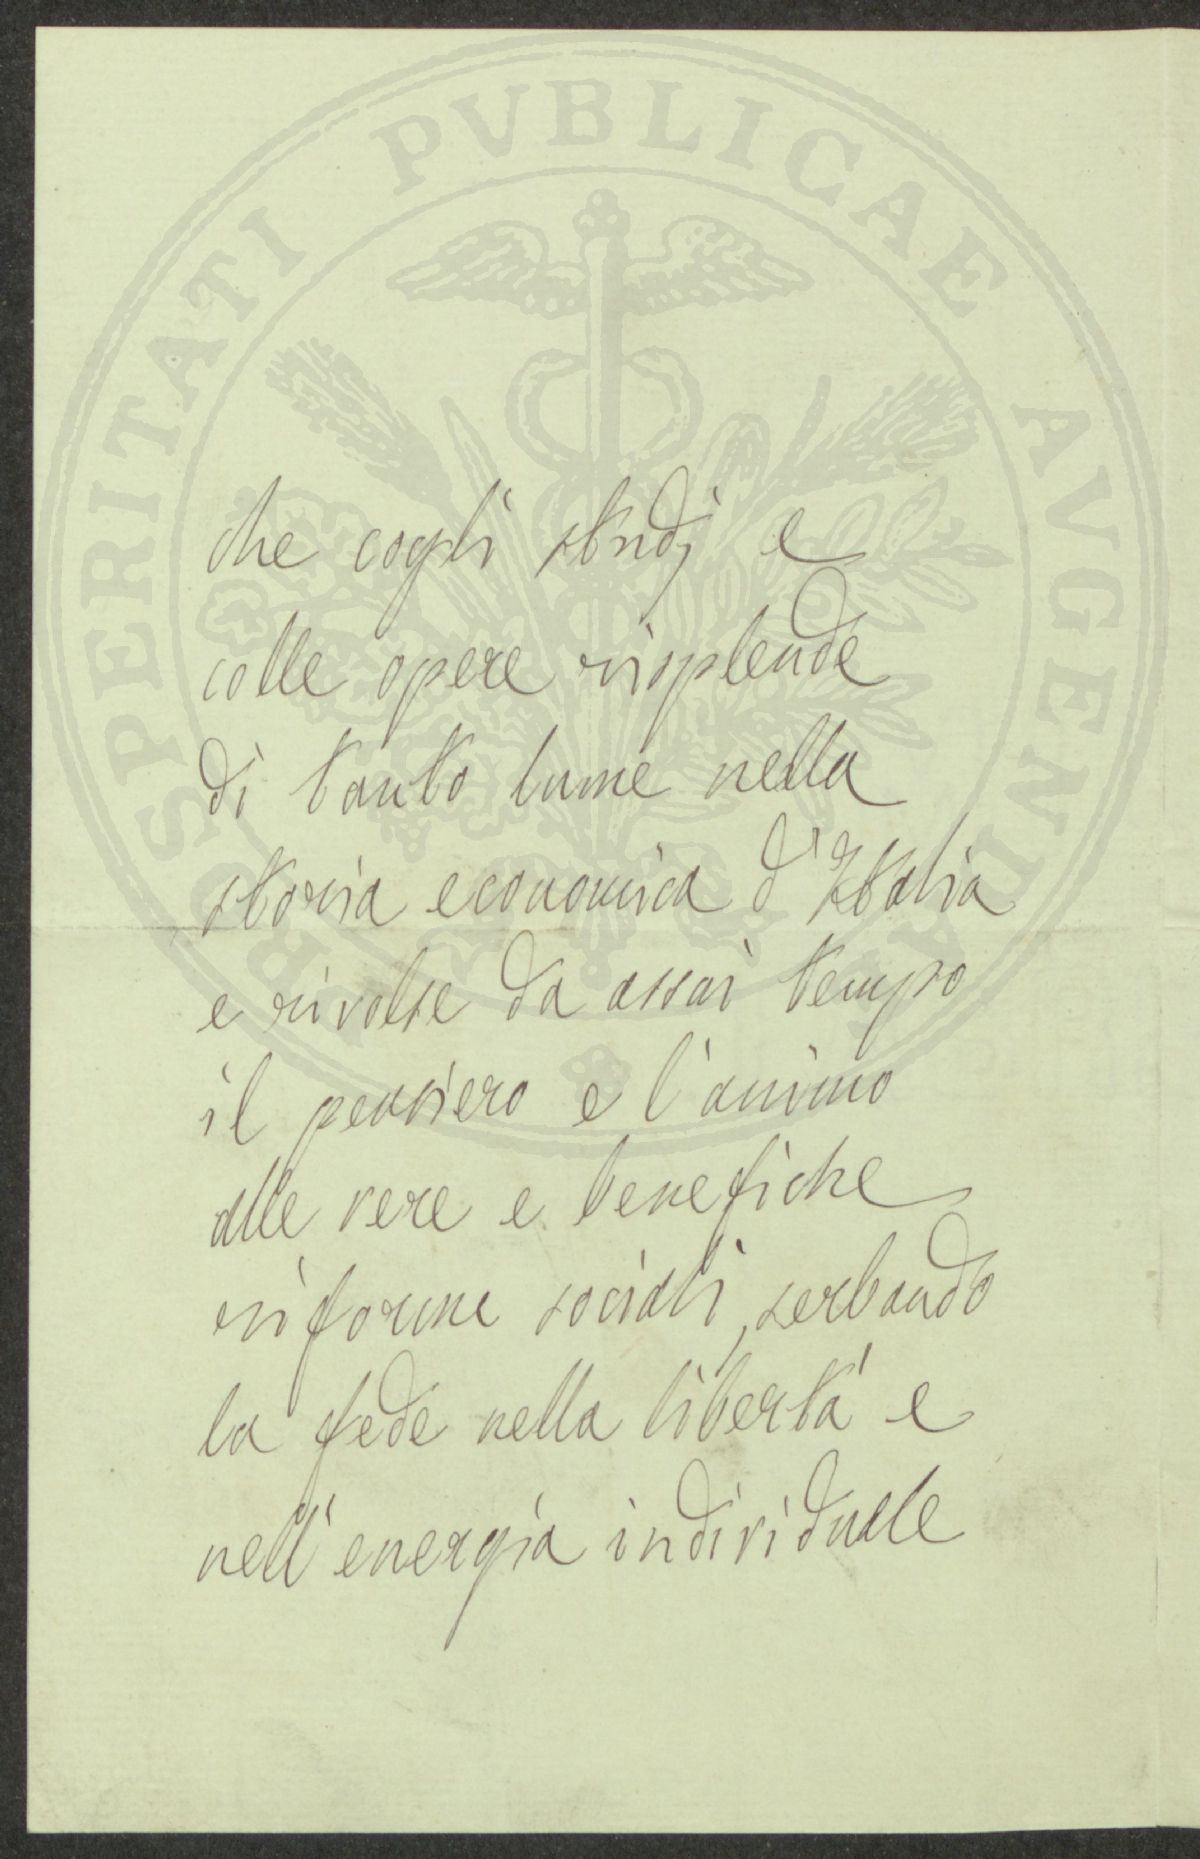 PROSPERITATI PVBLICAE AVGENDAE
che cogli studj e
colle opere risplende
di tanto lume nella
storia economica d'Italia
e rivolse da assai tempo
il pensiero e l'animo
alle vere e benefiche
riforme sociali, serbando
la fede nella libertà e
nell'energia individuale